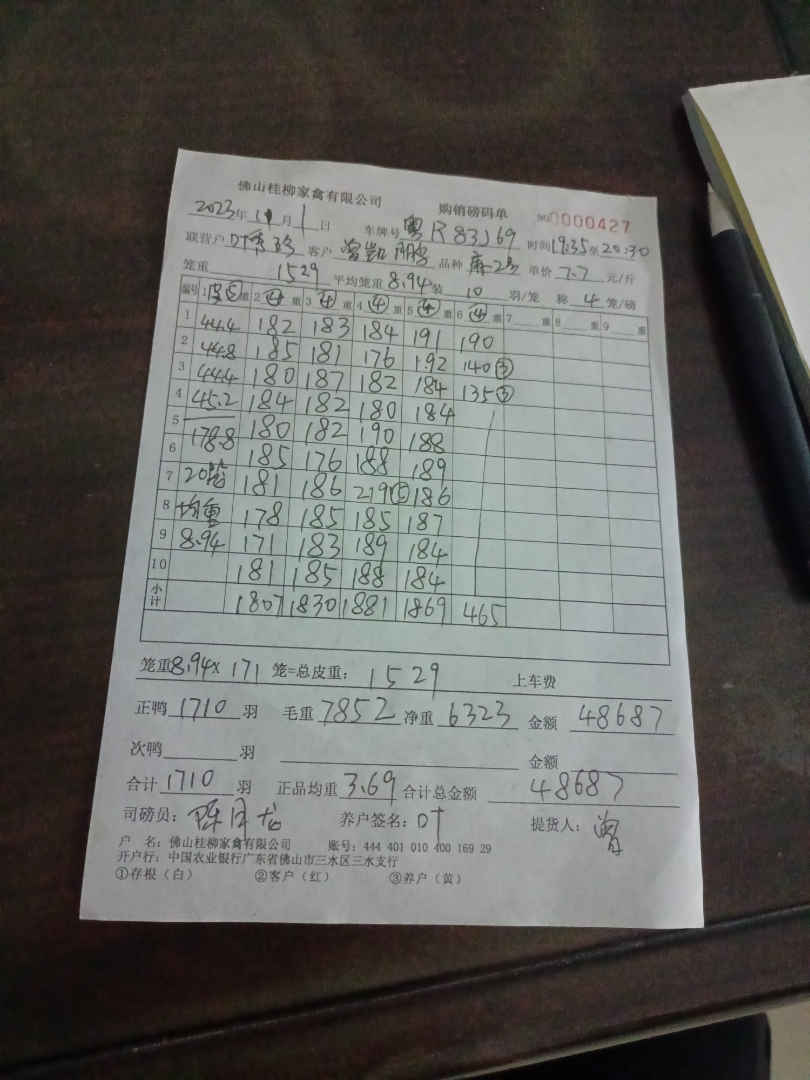 佛山桂柳家禽有限公司 购销磅码单 NO 0000427
2023年 11月 1日 车牌号 粤R83J69 时间 19:35至20:30
联营户 叶秀珍 客户 曾凯鹏 品种 麻2号 单价 7.7 元/斤
笼重 1529 平均笼重 8.94 装 10 羽/笼 称 4 笼/磅
编号 1 皮⑤重 2 ④ 重 3 ④ 重 4 ④ 重 5 ④ 重 6 ④ 重 7 重 8 重 9 重
1 44.4 182 183 184 191 190
2 44.8 185 181 176 192 140③
3 44.4 180 187 182 184 135③
4 45.2 184 182 180 184
5 178.8 180 182 190 188
6 185 176 188 189
7 20笼 181 186 219⑤ 186
8 均重 178 185 185 187
9 8.94 171 183 189 184
10 181 185 188 184
小计 1807 1830 1881 1869 465
笼重 8.94 x 171 笼=总皮重: 1529 上车费
正鸭 1710 羽 毛重 7852 净重 6323 金额 48687
次鸭 羽 金额
合计 1710 羽 正品均重 3.69 合计总金额 48687
司磅员: 陈月龙 养户签名: 叶 提货人: 曾
户 名: 佛山桂柳家禽有限公司 账号: 444 401 010 400 169 29
开户行: 中国农业银行广东省佛山市三水区三水支行
①存根(白) ②客户(红) ③养户(黄)